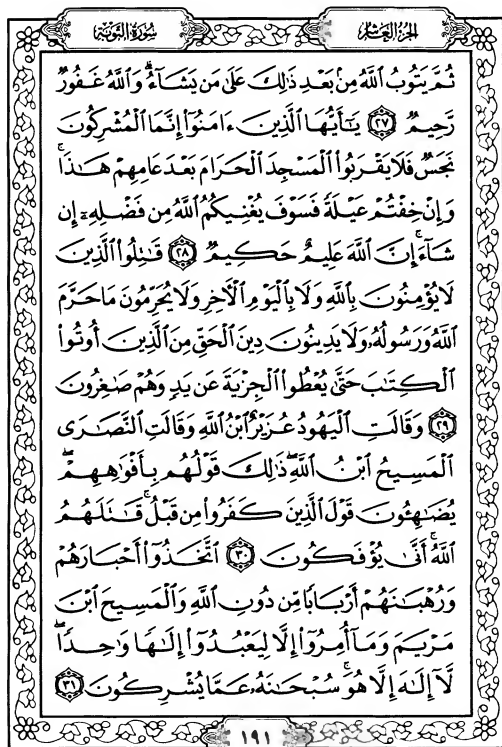 سُورَةُ التَّوْبَةِ الجُزْءُ العَاشِرُ
ثُمَّ يَتُوبُ ٱللَّهُ مِنۢ بَعْدِ ذَٰلِكَ عَلَىٰ مَن يَشَآءُۗ وَٱللَّهُ غَفُورٌ
رَّحِيمٌ ٢٧ يَٰٓأَيُّهَا ٱلَّذِينَ ءَامَنُوٓا۟ إِنَّمَا ٱلْمُشْرِكُونَ
نَجَسٌ فَلَا يَقْرَبُوا۟ ٱلْمَسْجِدَ ٱلْحَرَامَ بَعْدَ عَامِهِمْ هَٰذَاۚ
وَإِنْ خِفْتُمْ عَيْلَةً فَسَوْفَ يُغْنِيكُمُ ٱللَّهُ مِن فَضْلِهِۦٓ إِن
شَآءَۚ إِنَّ ٱللَّهَ عَلِيمٌ حَكِيمٌ ٢٨ قَٰتِلُوا۟ ٱلَّذِينَ
لَا يُؤْمِنُونَ بِٱللَّهِ وَلَا بِٱلْيَوْمِ ٱلْءَاخِرِ وَلَا يُحَرِّمُونَ مَا حَرَّمَ
ٱللَّهُ وَرَسُولُهُۥ وَلَا يَدِينُونَ دِينَ ٱلْحَقِّ مِنَ ٱلَّذِينَ أُوتُوا۟
ٱلْكِتَٰبَ حَتَّىٰ يُعْطُوا۟ ٱلْجِزْيَةَ عَن يَدٍ وَهُمْ صَٰغِرُونَ
٢٩ وَقَالَتِ ٱلْيَهُودُ عُزَيْرٌ ٱبْنُ ٱللَّهِ وَقَالَتِ ٱلنَّصَٰرَى
ٱلْمَسِيحُ ٱبْنُ ٱللَّهِۖ ذَٰلِكَ قَوْلُهُم بِأَفْوَٰهِهِمْۖ
يُضَٰهِـُٔونَ قَوْلَ ٱلَّذِينَ كَفَرُوا۟ مِن قَبْلُۚ قَٰتَلَهُمُ
ٱللَّهُۚ أَنَّىٰ يُؤْفَكُونَ ٣٠ ٱتَّخَذُوٓا۟ أَحْبَارَهُمْ
وَرُهْبَٰنَهُمْ أَرْبَابًا مِّن دُونِ ٱللَّهِ وَٱلْمَسِيحَ ٱبْنَ
مَرْيَمَ وَمَآ أُمِرُوٓا۟ إِلَّا لِيَعْبُدُوٓا۟ إِلَٰهًا وَٰحِدًاۖ
لَّآ إِلَٰهَ إِلَّا هُوَۚ سُبْحَٰنَهُۥ عَمَّا يُشْرِكُونَ ٣١
١٩١